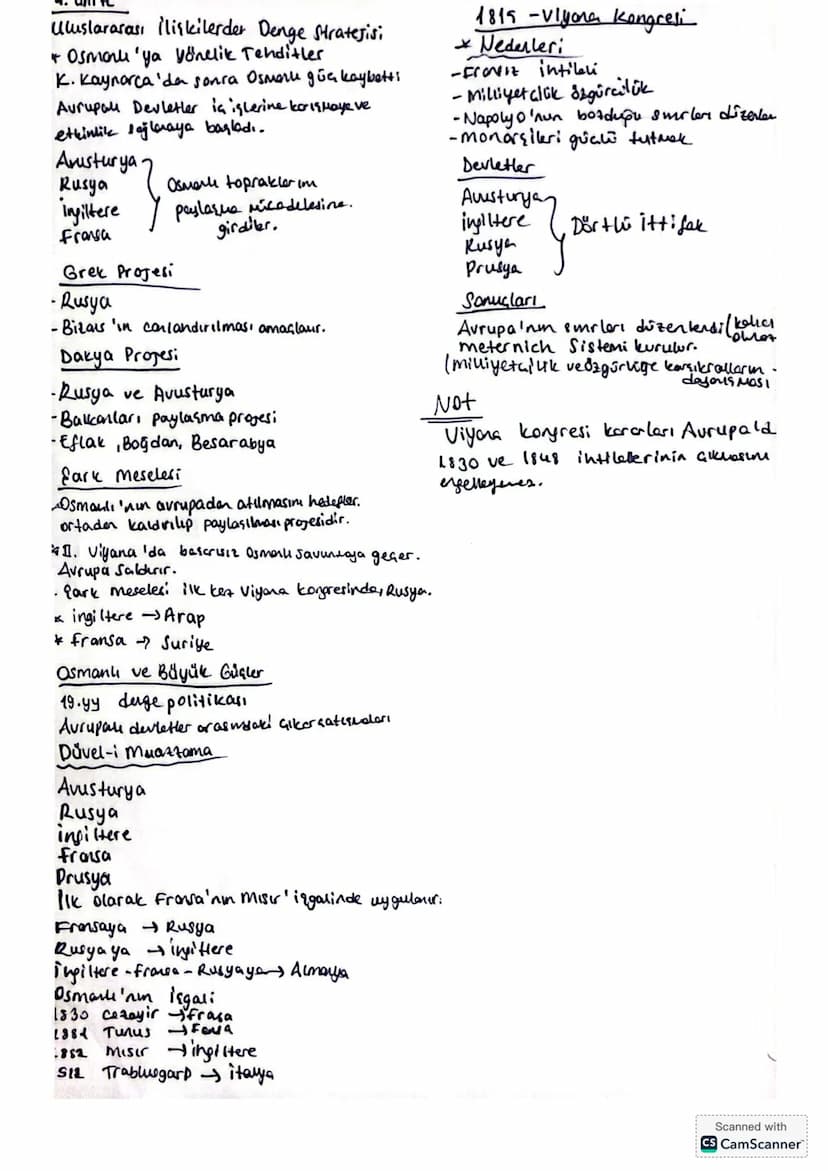 4. ünite
Uluslararası İlişkilerder Denge Stratejisi
+ Osmanlı'ya Yönelik Tehditler
K. Kaynarca'dan sonra Osmanlı güç kaybetti
Avrupalı Devletler iç işlerine karışmaya ve
etkinlik sağlamaya başladı.
Avusturya
Rusya
İngiltere
Fransa
Osmanlı topraklarını
paylaşma mücadelesine.
girdiler.
Grek Projesi
- Rusya
- Bizans'ın canlandırılması amaçlanır.
Dakya Projesi
- Rusya ve Avusturya
- Balkanları paylaşma projesi
- Eflak, Boğdan, Besarabya
Şark Meselesi
- Osmanlı'nın avrupadan atılmasını hedefler.
ortadan kaldırılıp paylaşılması projesidir.
* II. Viyana'da başarısız Osmanlı savunmaya geçer.
Avrupa Saldırır.
. Şark meselesi ilk kez Viyana kongresinde, Rusya.
* ingiltere → Arap
* Fransa → Suriye
Osmanlı ve Büyük Güçler
19.yy denge politikası
Avrupalı devletler arasındaki çıkar çatışmaları
Düvel-i Muazzama
Avusturya
Rusya
ingiltere
fransa
Prusya
İlk olarak Fransa'nın Mısır' işgalinde uygulanır.
Fransaya → Rusya
Rusyaya → ingiltere
İngiltere - fransa - Rusyaya → Almanya
Osmanlı'nın işgali
1830 Cezayir → fransa
1881 Tunus → Fransa
.882 Mısır → ingiltere
912 Trablusgarp → italya
1815 - Viyana Kongresi
* Nedenleri
- Fransız İhtilali
- Milliyetçilik özgürcülük
- Napolyo'nun bozduğu sınırları düzenler
- monarşileri güçlü tutmak
Devletler
Avusturya
ingiltere
Rusya
Prusya
Dörtlü ittifak
Sonuçları
Avrupa'nın sınırları düzenlendi (kalıcı olmaz
meternich Sistemi kurulur.
(milliyetçilik ve özgürlüğe karşı kralların
dayanışması
NOT
Viyana kongresi kararları Avrupa'd
1830 ve 1848 ihtilallerinin çıkmasını
engelleyemez.
Scanned with
CS CamScanner